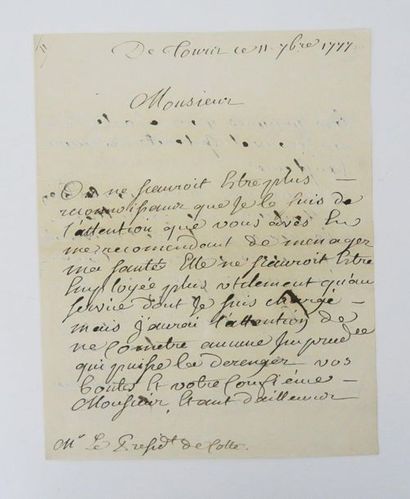 De Touris ce 11 7bre 1777
Monsieur
On ne sçauroit Estre plus –
reconnoissant que Je le suis de
l'attention que vous avés Eu
me recomendant de menager
ma santé. Elle ne sçauroit Estre
Employée plus utilement qu'au
service dont Je suis chargé –
mais J'aurai l'attention de
ne cometre aucune Imprudce
qui puisse la deranger vos
bontés Et votre
Monsieur, Etant d'ailleurs
Mr Le Presidt de Cotte